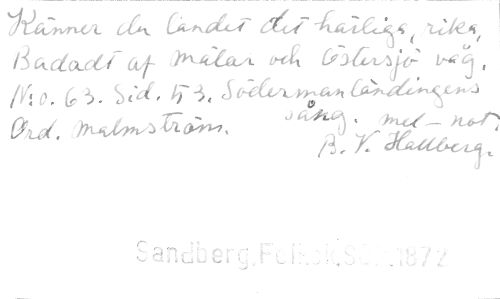 Känner du landet det härliga, rika,
Badadt af mälar och Östersjö våg.
N:o. 63. Sid. 53. Södermanländingens
sång. mel-not.
Ord. Malmström.
B. V. Hallberg.
Sandberg, Folksk, Sö 1872